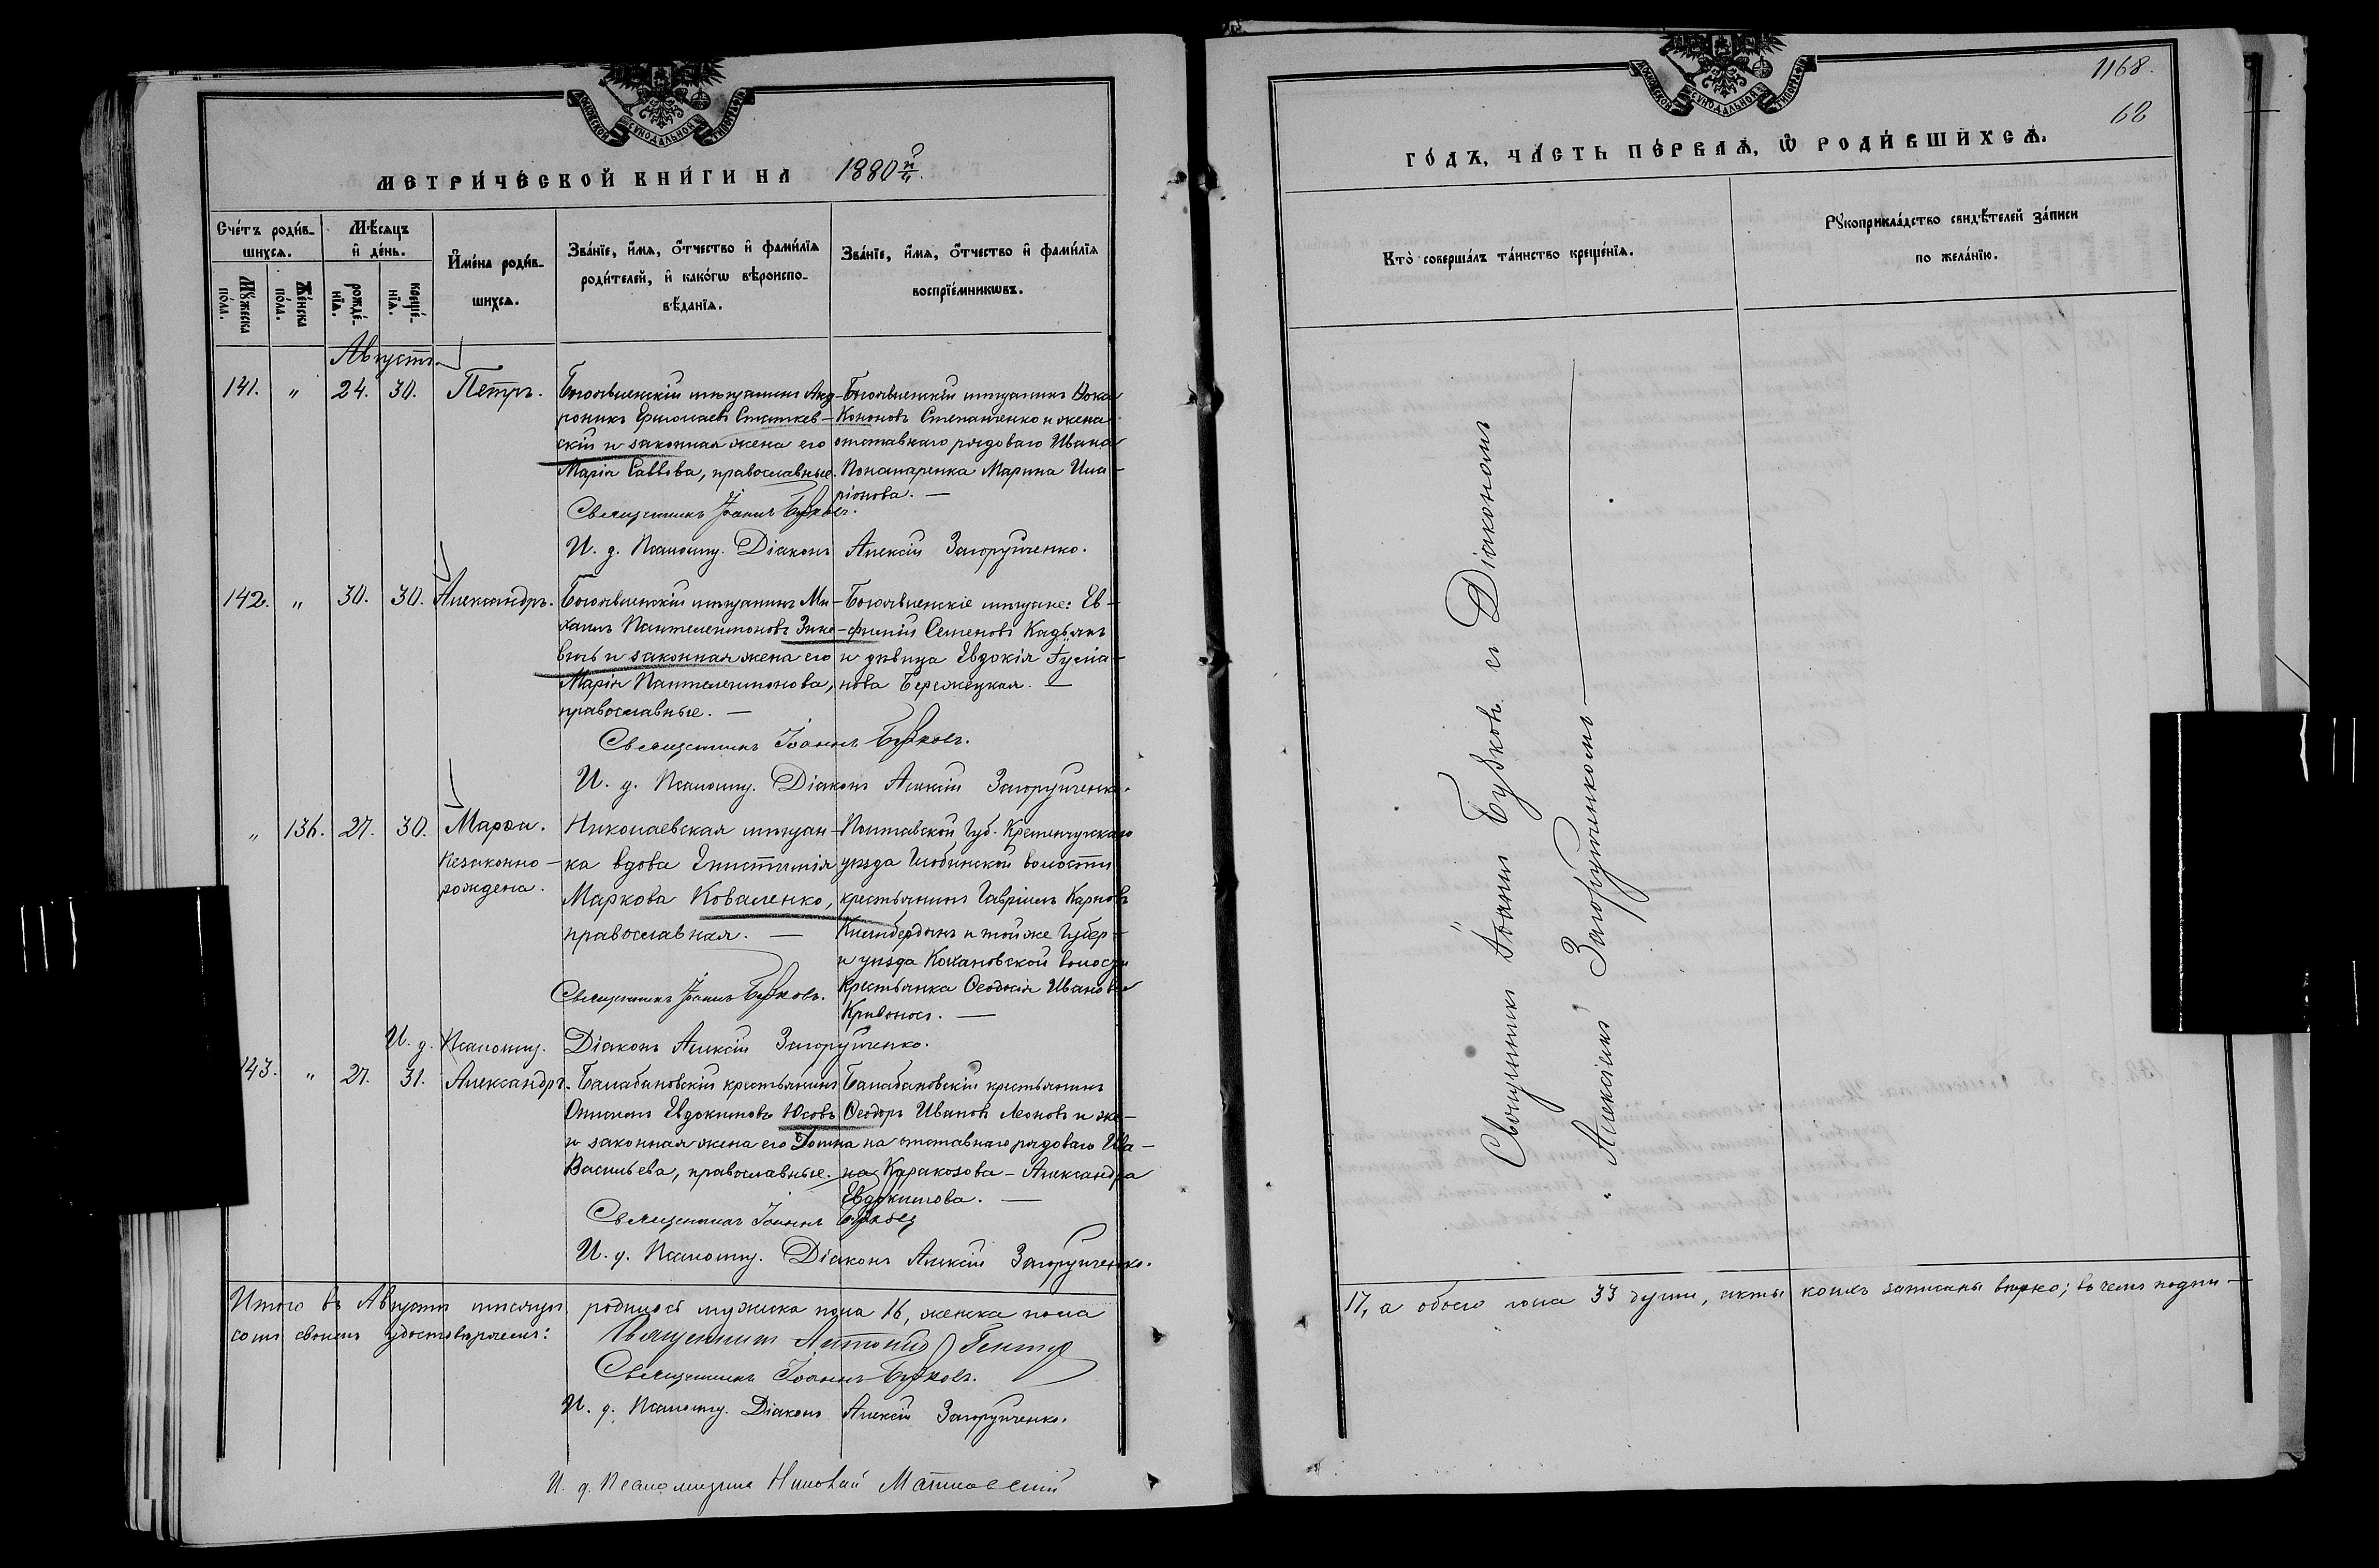 МОСКОВСКОЙ СѴНОДАЛЬНОЙ ТИПОГРАФІИ
МЕТРИ́ЧЕСКОЙ КНИ́ГИ НА 1880й
Сче́тъ роди́в-
шихсѧ.
Мꙋ́жеска
по́ла.
Же́нска
по́ла.
Мѣ́сѧцъ
и҆ де́нь.
рожде́-
нїѧ.
креще́-
нїѧ.
И҆мена̀ роди́в-
шихсѧ.
Зва́нїе, и҆́мѧ, ѻ҆́тчество и҆ фами́лїѧ
роди́телей, и҆ како́гѡ вѣроиспо-
вѣ́данїѧ.
Зва́нїе, и҆́мѧ, ѻ҆́тчество и҆ фами́лїѧ
воспрїе́мникѡвъ.
Августъ
141. " 24. 30. Петръ.
Богоявленскій мѣщанинъ Анд-
роникъ Ермолаевъ Статкев-
скій и законная жена его
Марія Саввова, православные.
Богоявленскій мѣщанинъ Фока
Кононовъ Степанченко и жена
отставнаго рядоваго Ивана
Понамаренка Марина Ила-
ріонова. —
Священникъ Іоаннъ Бужковъ.
И. д. Псаломщ. Діаконъ Алексій Загоруйченко.
142. " 30. 30. Александръ.
Богоявленскій мѣщанинъ Ми-
хаилъ Пантелеимоновъ Зинке-
вичъ и законная жена его
Марія Пантелеимонова,
православные. —
Богоявленскіе мѣщане: Ев-
фимій Семеновъ Кадьянъ
и дѣвица Евдокія
нова Бережецкая. —
Священникъ Іоаннъ Бужковъ.
И. д. Псаломщ. Діаконъ Алексій Загоруйченко.
" 136. 27. 30. Марѳа.
Незаконно-
рождена.
Николаевская мѣщан-
ка вдова Епистимія
Маркова Коваленко,
православная. —
Полтавской Губ. Кременчугскаго
уѣзда Глобинской волости
крестьянинъ Гавріилъ Карповъ
и той же Губер-
и уѣзда Кохановской волости
Крестьянка Ѳеодосія Иванова
Кривонос. —
Священникъ Іоаннъ Бужковъ.
И. д. Псаломщ. Діаконъ Алексій Загоруйченко.
143. " 27. 31. Александръ.
Балабановскій крестьянинъ
Евдокимовъ Юсовъ
и законная жена его Домна
Васильева, православные.
Балабановскій крестьянинъ
Ѳеодоръ Ивановъ Леоновъ и же-
на отставнаго рядоваго Ива-
на Каракозова - Александра
Евдокимова. —
Священникъ Іоаннъ Бужковъ
И. д. Псаломщ. Діаконъ Алексій Загоруйченко.
Итого въ Августѣ мѣсяцѣ родилось мужска пола 16, женска пола
сомъ своимъ удостовѣряемъ:
Священникъ Антоній
Священникъ Іоаннъ Бужковъ.
И. д. Псаломщ. Діаконъ Алексій Загоруйченко.
И. д. Псаломщика Николай
МОСКОВСКОЙ СѴНОДАЛЬНОЙ ТИПОГРАФІИ
1168.
62
ГО́ДЪ, ЧА́СТЬ ПЕ́РВАѦ, Ѡ҆ РОДИ́ВШИХСѦ.
Кто̀ соверша́лъ та́инство креще́нїѧ.
Рꙋкоприкла́дство свидѣ́телей за́писи
по жела́нїю.
Священникъ Іоаннъ Бужковъ съ Діакономъ
Алексіемъ Загоруйченкомъ
17, а обоего пола 33 души, акты коихъ записаны вѣрно; въ чемъ подпи-